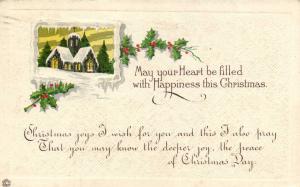 May your Heart be filled
with Happiness this Christmas.
Christmas joys I wish for you and this I also pray
That you may know the deeper joy, the peace
of Christmas Day.